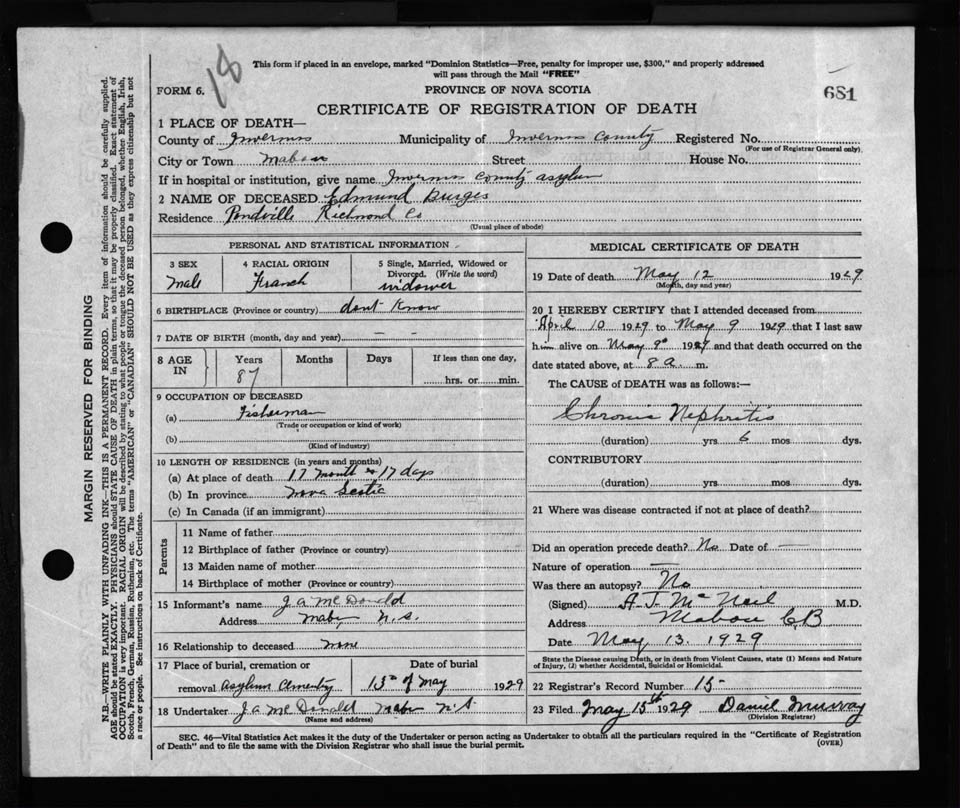 18
This form if placed in an envelope, marked "Dominion Statistics—Free, penalty for improper use, $300," and properly addressed
will pass through the Mail "FREE"
FORM 6.
PROVINCE OF NOVA SCOTIA
681
CERTIFICATE OF REGISTRATION OF DEATH
1 PLACE OF DEATH—
County of Inverness Municipality of Inverness County Registered No.
(For use of Registrar General only)
City or Town Mabou Street House No.
If in hospital or institution, give name Inverness County asylum
2 NAME OF DECEASED Edmund Burges
Residence Pondville Richmond Co
(Usual place of abode)
PERSONAL AND STATISTICAL INFORMATION
3 SEX
male
4 RACIAL ORIGIN
French
5 Single, Married, Widowed or
Divorced. (Write the word)
widower
6 BIRTHPLACE (Province or country) dont Know
7 DATE OF BIRTH (month, day and year) — —
8 AGE IN
Years Months Days If less than one day,
87
hrs. or min.
9 OCCUPATION OF DECEASED
(a) Fisherman
(Trade or occupation or kind of work)
(b)
(Kind of industry)
10 LENGTH OF RESIDENCE (in years and months)
(a) At place of death 17 month & 17 days
(b) In province Nova Scotia
(c) In Canada (if an immigrant)
Parents
11 Name of father
12 Birthplace of father (Province or country)
13 Maiden name of mother
14 Birthplace of mother (Province or country)
15 Informant's name J. A McDonald
Address Mabou N.S.
16 Relationship to deceased None
17 Place of burial, cremation or Date of burial
removal Asylum Cemetry 13th of May 1929
18 Undertaker J. A McDonald Mabou N.S
(Name and address)
MEDICAL CERTIFICATE OF DEATH
19 Date of death May 12 1929
(Month, day and year)
20 I HEREBY CERTIFY that I attended deceased from
April 10 1929 to May 9 1929 that I last saw
him alive on May 9th 1929 and that death occurred on the
date stated above, at 8 a. m.
The CAUSE of DEATH was as follows:—
Chronic Nephritis
(duration) yrs 6 mos dys.
CONTRIBUTORY
(duration) yrs. mos dys.
21 Where was disease contracted if not at place of death?
Did an operation precede death? No Date of —
Nature of operation —
Was there an autopsy? No
(Signed) A. J. McNeil M.D.
Address Mabou CB
Date May 13. 1929
State the Disease causing Death, or in death from Violent Causes, state (1) Means and Nature
of Injury, (2) whether Accidental, Suicidal or Homicidal.
22 Registrar's Record Number 15-
23 Filed May 15th 1929 Daniel Murray
(Division Registrar)
SEC. 46—Vital Statistics Act makes it the duty of the Undertaker or person acting as Undertaker to obtain all the particulars required in the "Certificate of Registration
of Death" and to file the same with the Division Registrar who shall issue the burial permit.
(OVER)
MARGIN RESERVED FOR BINDING
N.B.—WRITE PLAINLY WITH UNFADING INK—THIS IS A PERMANENT RECORD. Every item of information should be carefully supplied.
AGE should be stated EXACTLY. PHYSICIANS should STATE CAUSE OF DEATH in plain terms, so that it may be properly classified. Exact statement of
OCCUPATION is very important. RACIAL ORIGIN will be described by stating to what people or tongue the deceased person belonged, whether English, Irish,
Scotch, French, German, Russian, Ruthenian, etc. The terms "AMERICAN" or "CANADIAN" SHOULD NOT BE USED as they express citizenship but not
a race or people. See instructions on back of Certificate.